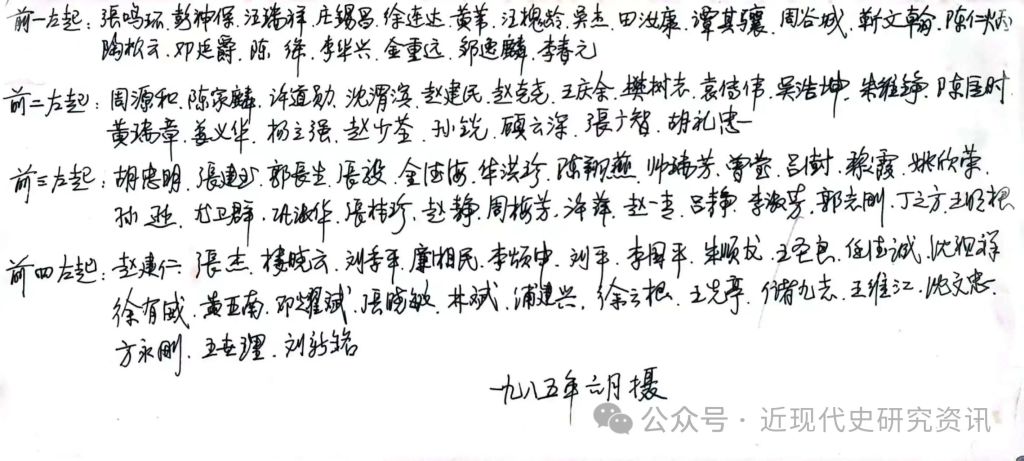 前一左起：張鸣环.彭神保.汪瑞祥.庄錫昌.徐连达.黄苇.汪槐龄.吴杰.田汝康.譚其驤.周谷城.靳文翰.陈仁炳
陶松云.邓廷爵.陈绛.李华兴.金重远.邹逸麟.李春元
前二左起：周源和.陈家麟.许道勋.沈渭滨.赵建民.赵克尧.王庆余.樊树志.袁传伟.吴浩坤.朱維錚.陈匡时
黄瑞章.姜义华.杨立强.赵少荃.孙锐.顾云深.張广智.胡礼忠
前三左起：胡忠明.張建.郭長生.張毅.金德海.华洪珍.陈翱燕.帅瑞芳.曹莹.吕澍.黎霞.姚欣荣.
孙.尤卫群.巩淑华.張桂珍.赵静.周梅芳.泽萍.赵一青.吕静.李淑芳.郭志刚.丁之方.王明根
前四左起：赵建仁.張杰.樓晓云.刘李平.廉相民.李頌申.刘平.李国平.朱顺龙.王圣良.任德诚.沈祖祥
徐有威.黄亚南.邓耀斌.張晓敏.林斌.浦建兴.徐云根.王克亭.储九志.王维江.沈文忠.
方永刚.王.刘新铭
一九八五年六月摄
公众号·近现代史研究资讯